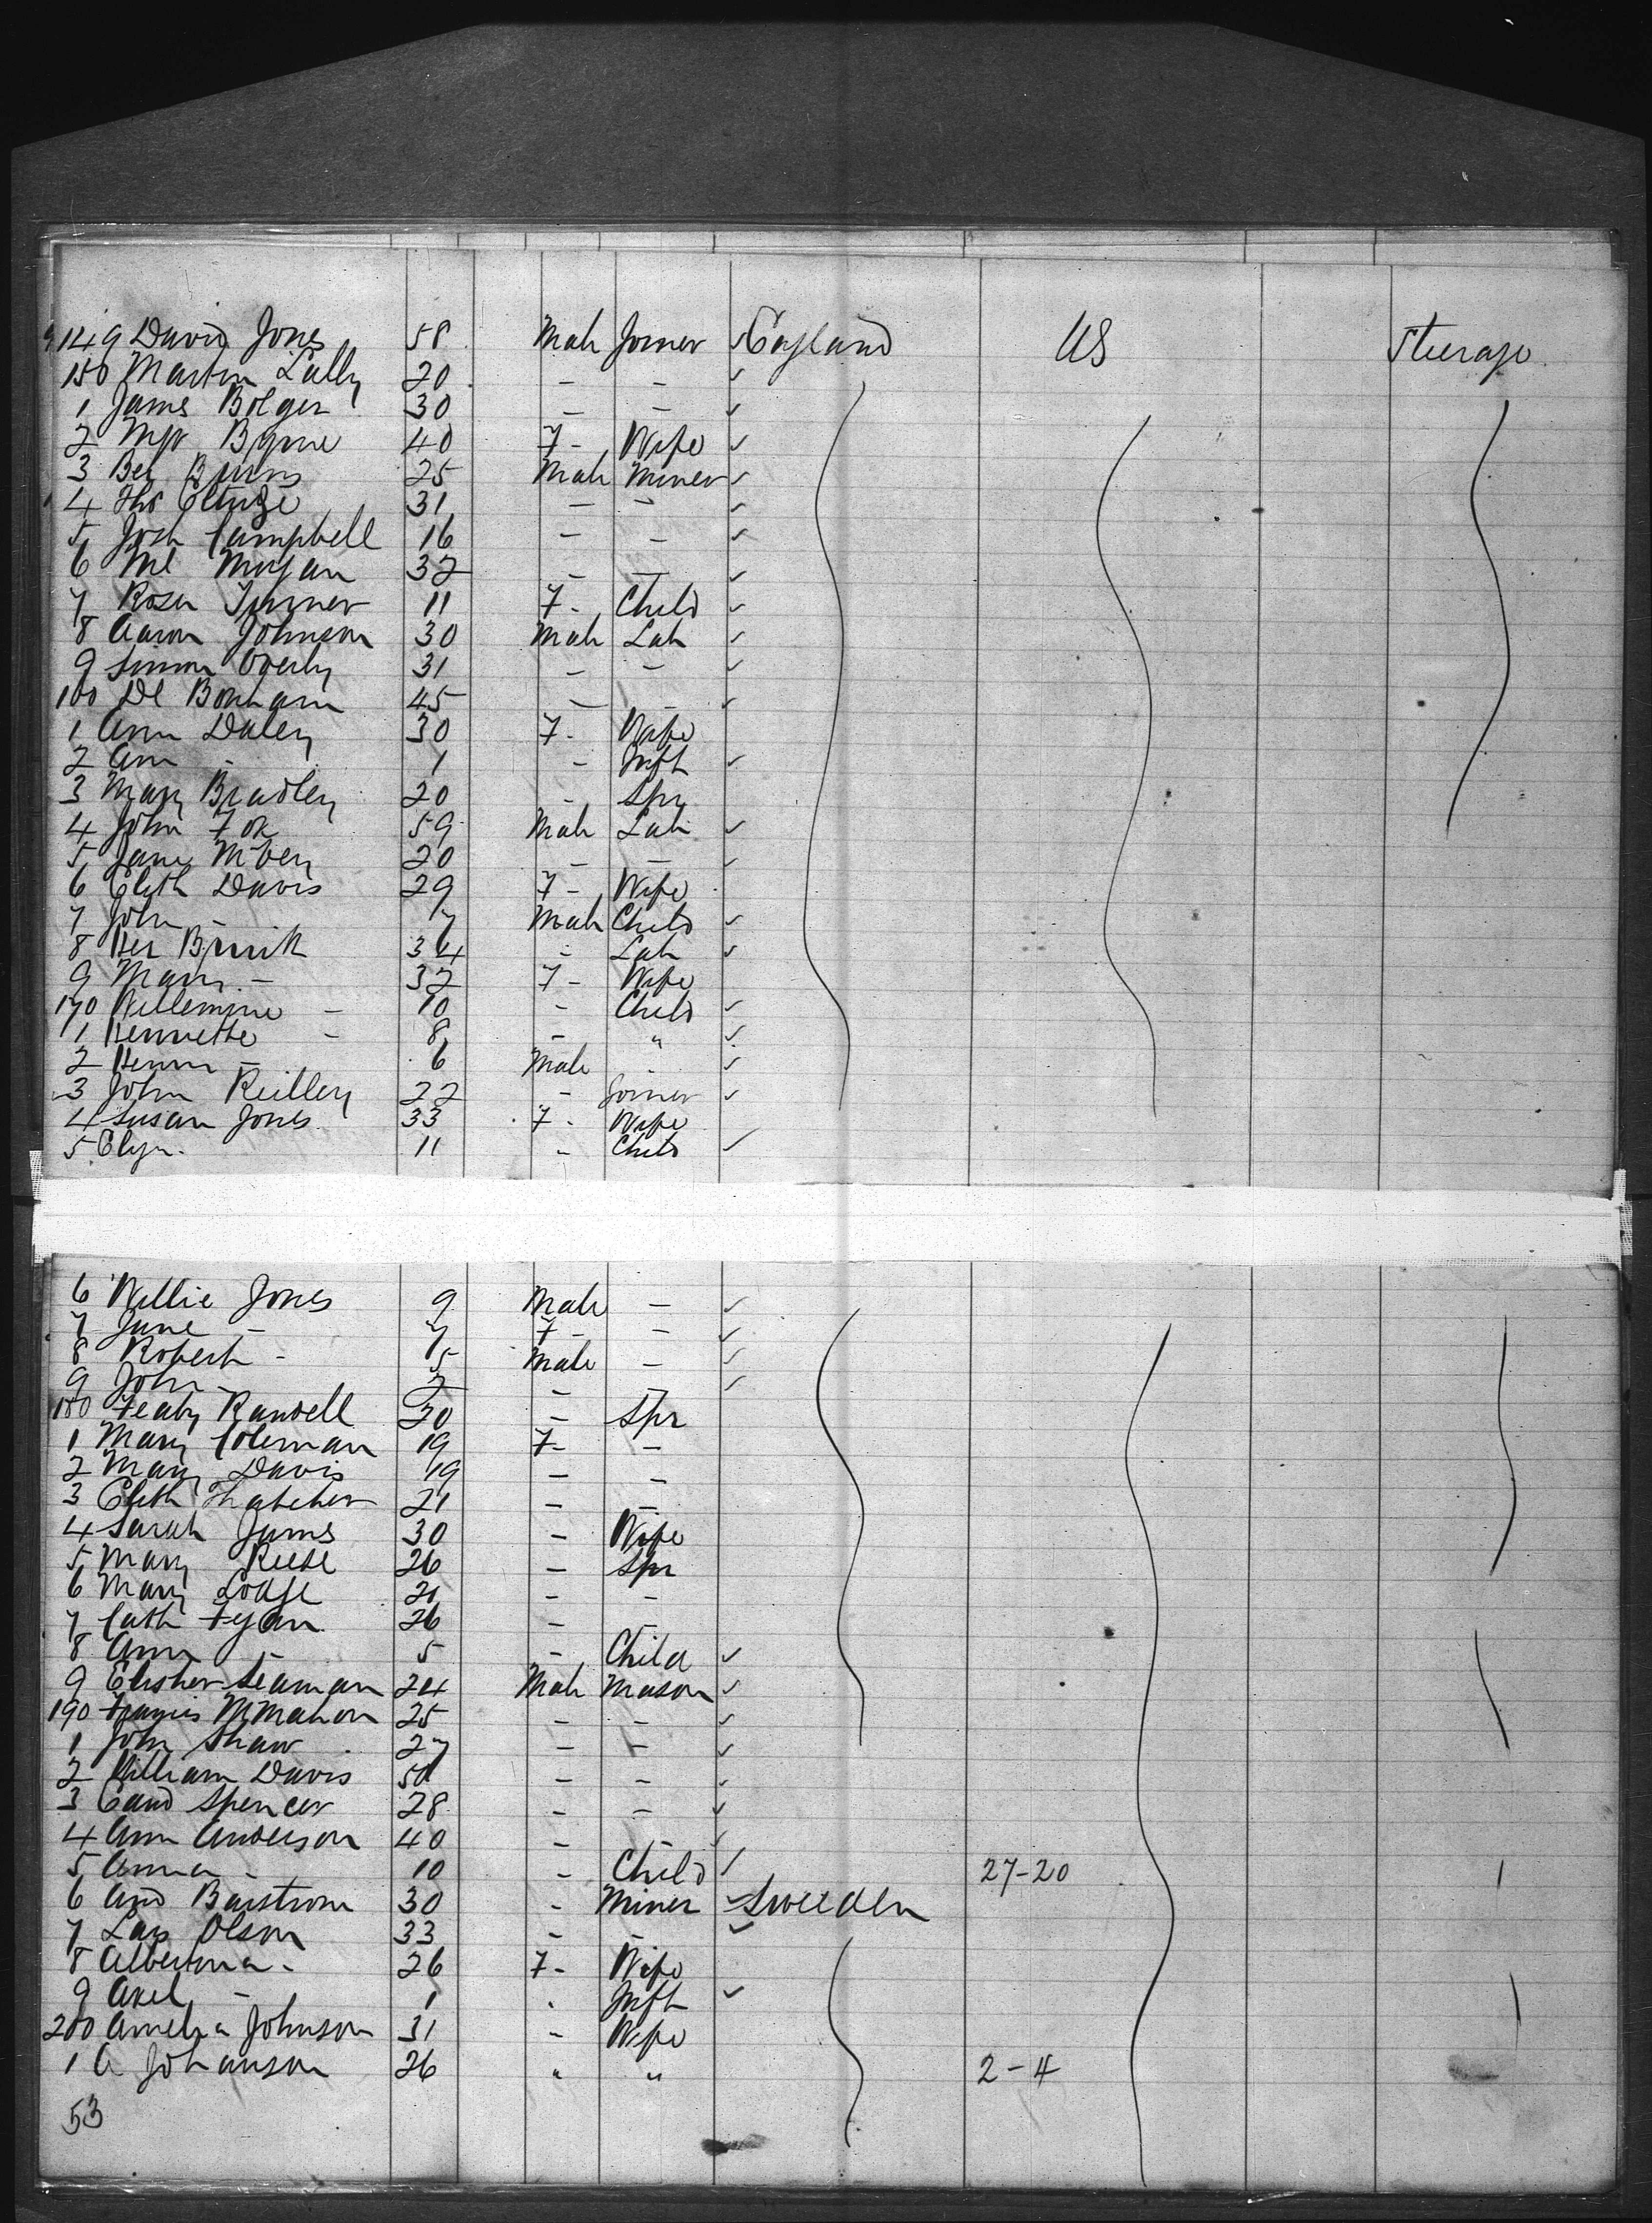 149 David Jones 58 Male Joiner ✓ England US Steerage
150 Martin Lally 20 - - ✓
1 James Bolger 30 - - ✓
2 Mgt Byrne 40 F - Wife ✓
3 Ben Burns 25 Male Miner ✓
4 Ths 31 - - ✓
5 Josh Campbell 16 - - ✓
6 Ml Morgan 32 - - ✓
7 Rosa Turner 11 F - Child ✓
8 Aaron Johnson 30 Male Lab ✓
9 Simon 31 - - ✓
160 Dl Bonham 45 - - ✓
1 Ann Daley 30 F - Wife
2 Ann - 1 - Inft ✓
3 Mary Bradley 20 - Spr
4 John Fox 59 Male Lab ✓
5 Jane 20 - - ✓
6 Elizth Davis 29 F - Wife
7 John - 7 Male Child ✓
8 Her 34 - Lab ✓
9 Mary - 32 F - Wife
170 Willemine - 10 - Child ✓
1 Henriette - 8 - " ✓
2 Henry - 6 Male - ✓
3 John Reilley 22 - Joiner ✓
4 Susan Jones 33 F - Wife
5 Elizn. 11 - Child ✓
6 Willie Jones 9 Male - ✓
7 Jane - 7 F - - ✓
8 Robert - 5 Male - ✓
9 John - 2 - - ✓
180 Randell 20 - Spr
1 Mary Coleman 19 F - -
2 Mary Davis 19 - -
3 Elizth Thatcher 21 - -
4 Sarah James 30 - Wife
5 Mary Reese 26 - Spr
6 Mary Lodge 21 - -
7 Cath Fyan 26 - -
8 Ann - 5 - Child ✓
9 Seaman 24 Male Mason ✓
190 Francis McMahon 25 - - ✓
1 John Shaw 27 - - ✓
2 William Davis 50 - - ✓
3 Edwd Spencer 28 - - ✓
4 Ann Anderson 40 - - ✓
5 Anna - 10 - Child ✓ 27-20
6 And Barstrom 30 - Miner ✓ Sweeden
7 Lars Olson 33 - - ✓
8 Albertina - 26 F - Wife
9 Axel - 1 - Inft ✓
200 Amelia Johnson 31 - Wife
1 A Johanson 26 " " 2-4
53